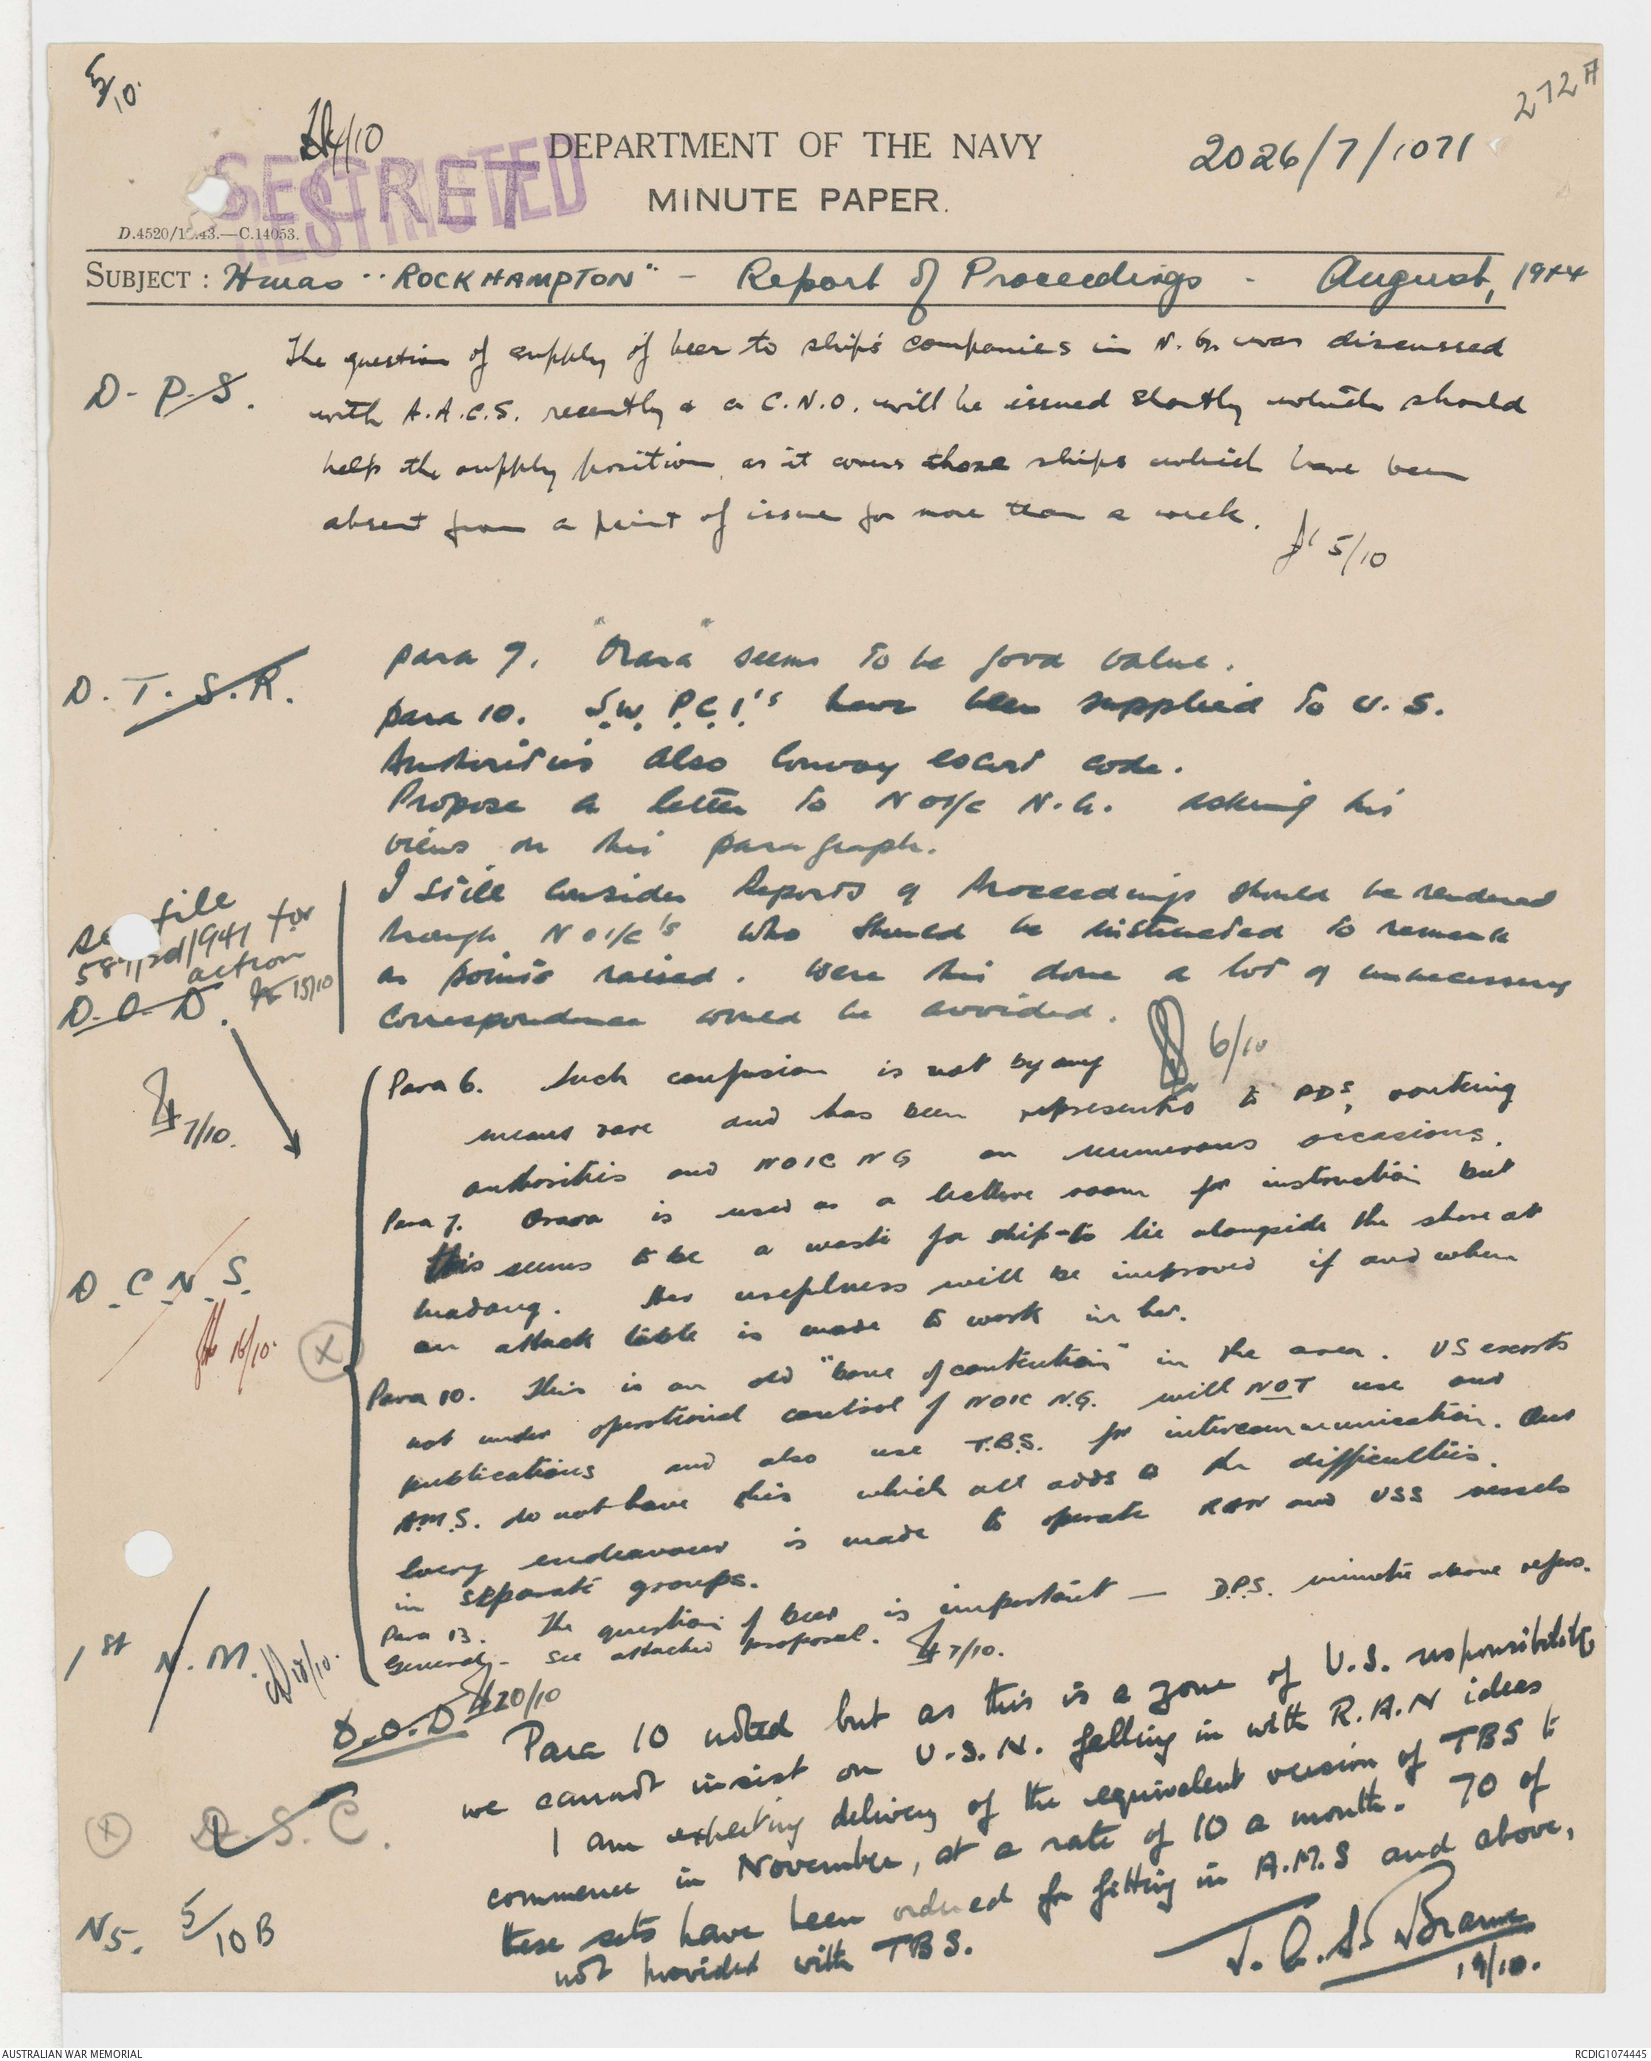 5/10.
272A
4/10
DEPARTMENT OF THE NAVY
2026/7/1071
SECRET
RESTRICTED
MINUTE PAPER.
D.4520/1 .43.—C.14053.
SUBJECT : Hmas "ROCKHAMPTON" - Report of Proceedings - August, 1944
D.P.S.
The question of supply of beer to ship's companies in N.G. was discussed
with A.A.C.S. recently & a C.N.O. will be issued shortly which should
help the supply position, as it covers those ships which have been
absent from a point of issue for more than a week.
5/10
D.T.S.R.
para 7. "Orara" seems to be good value.
para 10. S.W.P.C.I's have been supplied to U.S.
Authorities also Convoy escort code.
Propose a letter to NOI/C N.G. asking his
views on this paragraph.
I still consider Reports of Proceedings should be rendered
through NOI/C's who should be instructed to remark
on points raised. Were this done a lot of unnecessary
correspondence would be avoided.
6/10
See file
/941 for
action
15/10
D.O.D.
7/10.
Para 6. Such confusion is not by any
means rare and has been represented to PDs, routeing
authorities and NOIC NG on numerous occasions.
Para 7. Orara is used as a lecture room for instruction but
this seems to be a waste for ship to lie alongside the shore at
Madang. Her usefulness will be improved if and when
an attack table is made to work in her.
D.C.N.S.
16/10.
X
Para 10. This is an old "bone of contention" in the area. US escorts
not under operational control of NOIC N.G. will NOT use our
publications and also use T.B.S. for intercommunication. Our
A.M.S. do not have this which all adds to the difficulties.
Every endeavour is made to operate RAN and USS vessels
in separate groups.
Para 13. The question of beer is important — D.P.S. minute above refers.
General - See attached proposal. 7/10.
1st N.M. 18/10.
D.O.D. 20/10
Para 10 noted but as this is a zone of U.S. responsibility
we cannot insist on U.S.N. falling in with R.A.N ideas
I am expecting delivery of the equivalent version of TBS to
commence in November, at a rate of 10 a month. 70 of
these sets have been ordered for fitting in A.M.S and above,
not provided with TBS.
X
D.S.C.
N5. 5/10B
19/10.
AUSTRALIAN WAR MEMORIAL
RCDIG1074445